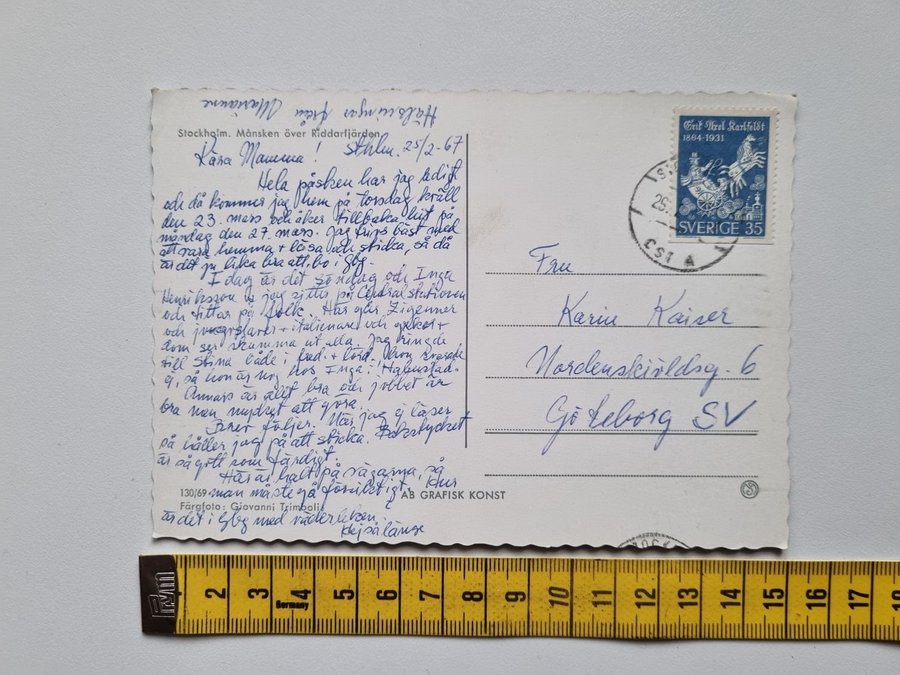 Hälsningar från Marianne
Stockholm. Månsken över Riddarfjärden
Kära Mamma! Sthlm. 25/2-67
Hela påsken har jag ledigt
och då kommer jag hem på torsdag kväll
den 23. mars och åker tillbaka hit på
måndag den 27. mars. Jag tycks bäst med
att vara hemma + läsa och sticka, så då
är det ju lika bra att bo i Gbg.
I dag är det söndag och Inga
Henriksson o jag sitter på Centralstationen
och tittar på folk. Här går Zigenare
och jugoslaver + italienare och greker +
som ser skumma ut alla. Jag ringde
till Stina både i fred. + lörd. Hon svarade
ej, så hon är nog hos Inga i Halmstad.
Annars är allt bra och jobbet är
bra men mycket att göra.
Brev följer. När jag ej läser
så håller jag på att sticka. Bakstycket
är så gott som färdigt.
Här är halt på vägarna, så
man måste gå försiktigt. Hur
är det i Gbg med väderleken.
Hej så länge
130/69
AB GRAFISK KONST
Färgfoto: Giovanni Trimboli
Erik Axel Karlfeldt
1864-1931
SVERIGE 35
CST A
Fru
Karin Kaiser
Nordenskiöldsg. 6
Göteborg SV
2 3 4 5 6 7 8 9 10 11 12 13 14 15 16 17 18
Germany